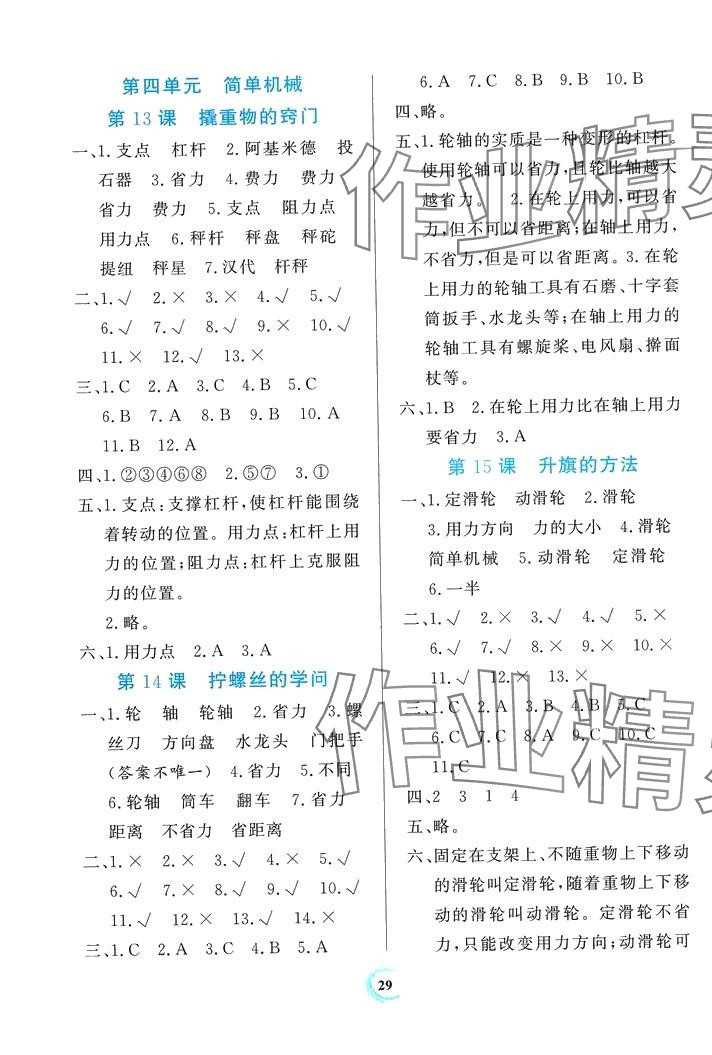 第四单元 简单机械
第13课 撬重物的窍门
一、1.支点 杠杆 2.阿基米德 投
石器 3.省力 4.费力 费力
省力 费力 5.支点 阻力点
用力点 6.秤杆 秤盘 秤砣
提纽 秤星 7.汉代 杆秤
二、1.√ 2.× 3.× 4.√ 5.√
6.√ 7.√ 8.√ 9.× 10.√
11.× 12.√ 13.×
三、1.C 2.A 3.A 4.C 5.C
6.B 7.A 8.A 9.B 10.C
11.B 12.A
四、1.②③④⑥⑧ 2.⑦ 3.①
五、1.支点:支撑杠杆,使杠杆能围绕
着转动的位置。用力点:杠杆上用
力的位置;阻力点:杠杆上克服阻
力的位置。
2.略。
六、1.用力点 2.A 3.A
第14课 拧螺丝的学问
一、1.轮 轴 轮轴 2.省力 3.螺
丝刀 方向盘 水龙头 门把手
(答案不唯一) 4.省力 5.不同
6.轮轴 筒车 翻车 7.省力
距离 不省力 省距离
二、1.× 2.× 3.√ 4.× 5.√
6.√ 7.× 8.√ 9.√ 10.√
11.√ 12.√ 13.√ 14.×
三、1.C 2.A 3.C 4.B 5.A
6.A 7.C 8.B 9.A 10.B
四、略。
五、1.轮轴的实质是一种变形的杠杆。
使用轮轴可以省力,且轮比轴越大
越省力。 2.在轮上用力,可以省
力,但不可以省距离;在轴上用力,
不省力,但是可以省距离。3.在轮
上用力的轮轴工具有石磨、十字套
筒扳手、水龙头等;在轴上用力的
轮轴工具有螺旋桨、电风扇、擀面
杖等。
六、1.B 2.在轮上用力比在轴上用力
要省力 3.A
第15课 升旗的方法
一、1.定滑轮 动滑轮 2.滑轮
3.用力方向 力的大小 4.滑轮
简单机械 5.动滑轮 定滑轮
6.一半
二、1.√ 2.× 3.√ 4.√ 5.×
6.√ 7.√ 8.× 9.× 10.×
11.√ 12.× 13.×
三、1.C 2.A 3.B 4.B 5.C
6.C 7.C 8.A 9.C 10.C
11.C
四、2 3 1 4
五、略。
六、固定在支架上、不随重物上下移动
的滑轮叫定滑轮,随着重物上下移
动的滑轮叫动滑轮。定滑轮不省
力,只能改变用力方向;动滑轮可
29
作业精灵
作业精灵